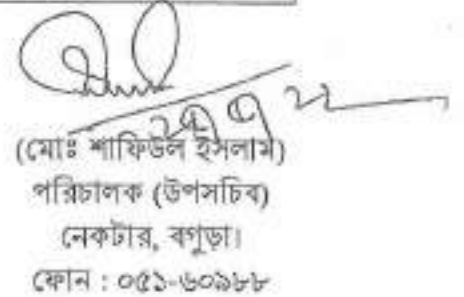 (মোঃ শাফিউল ইসলাম)
পরিচালক (উপসচিব)
নেকটার, বগুড়া।
ফোন : ০৫১-৬০৯৮৮